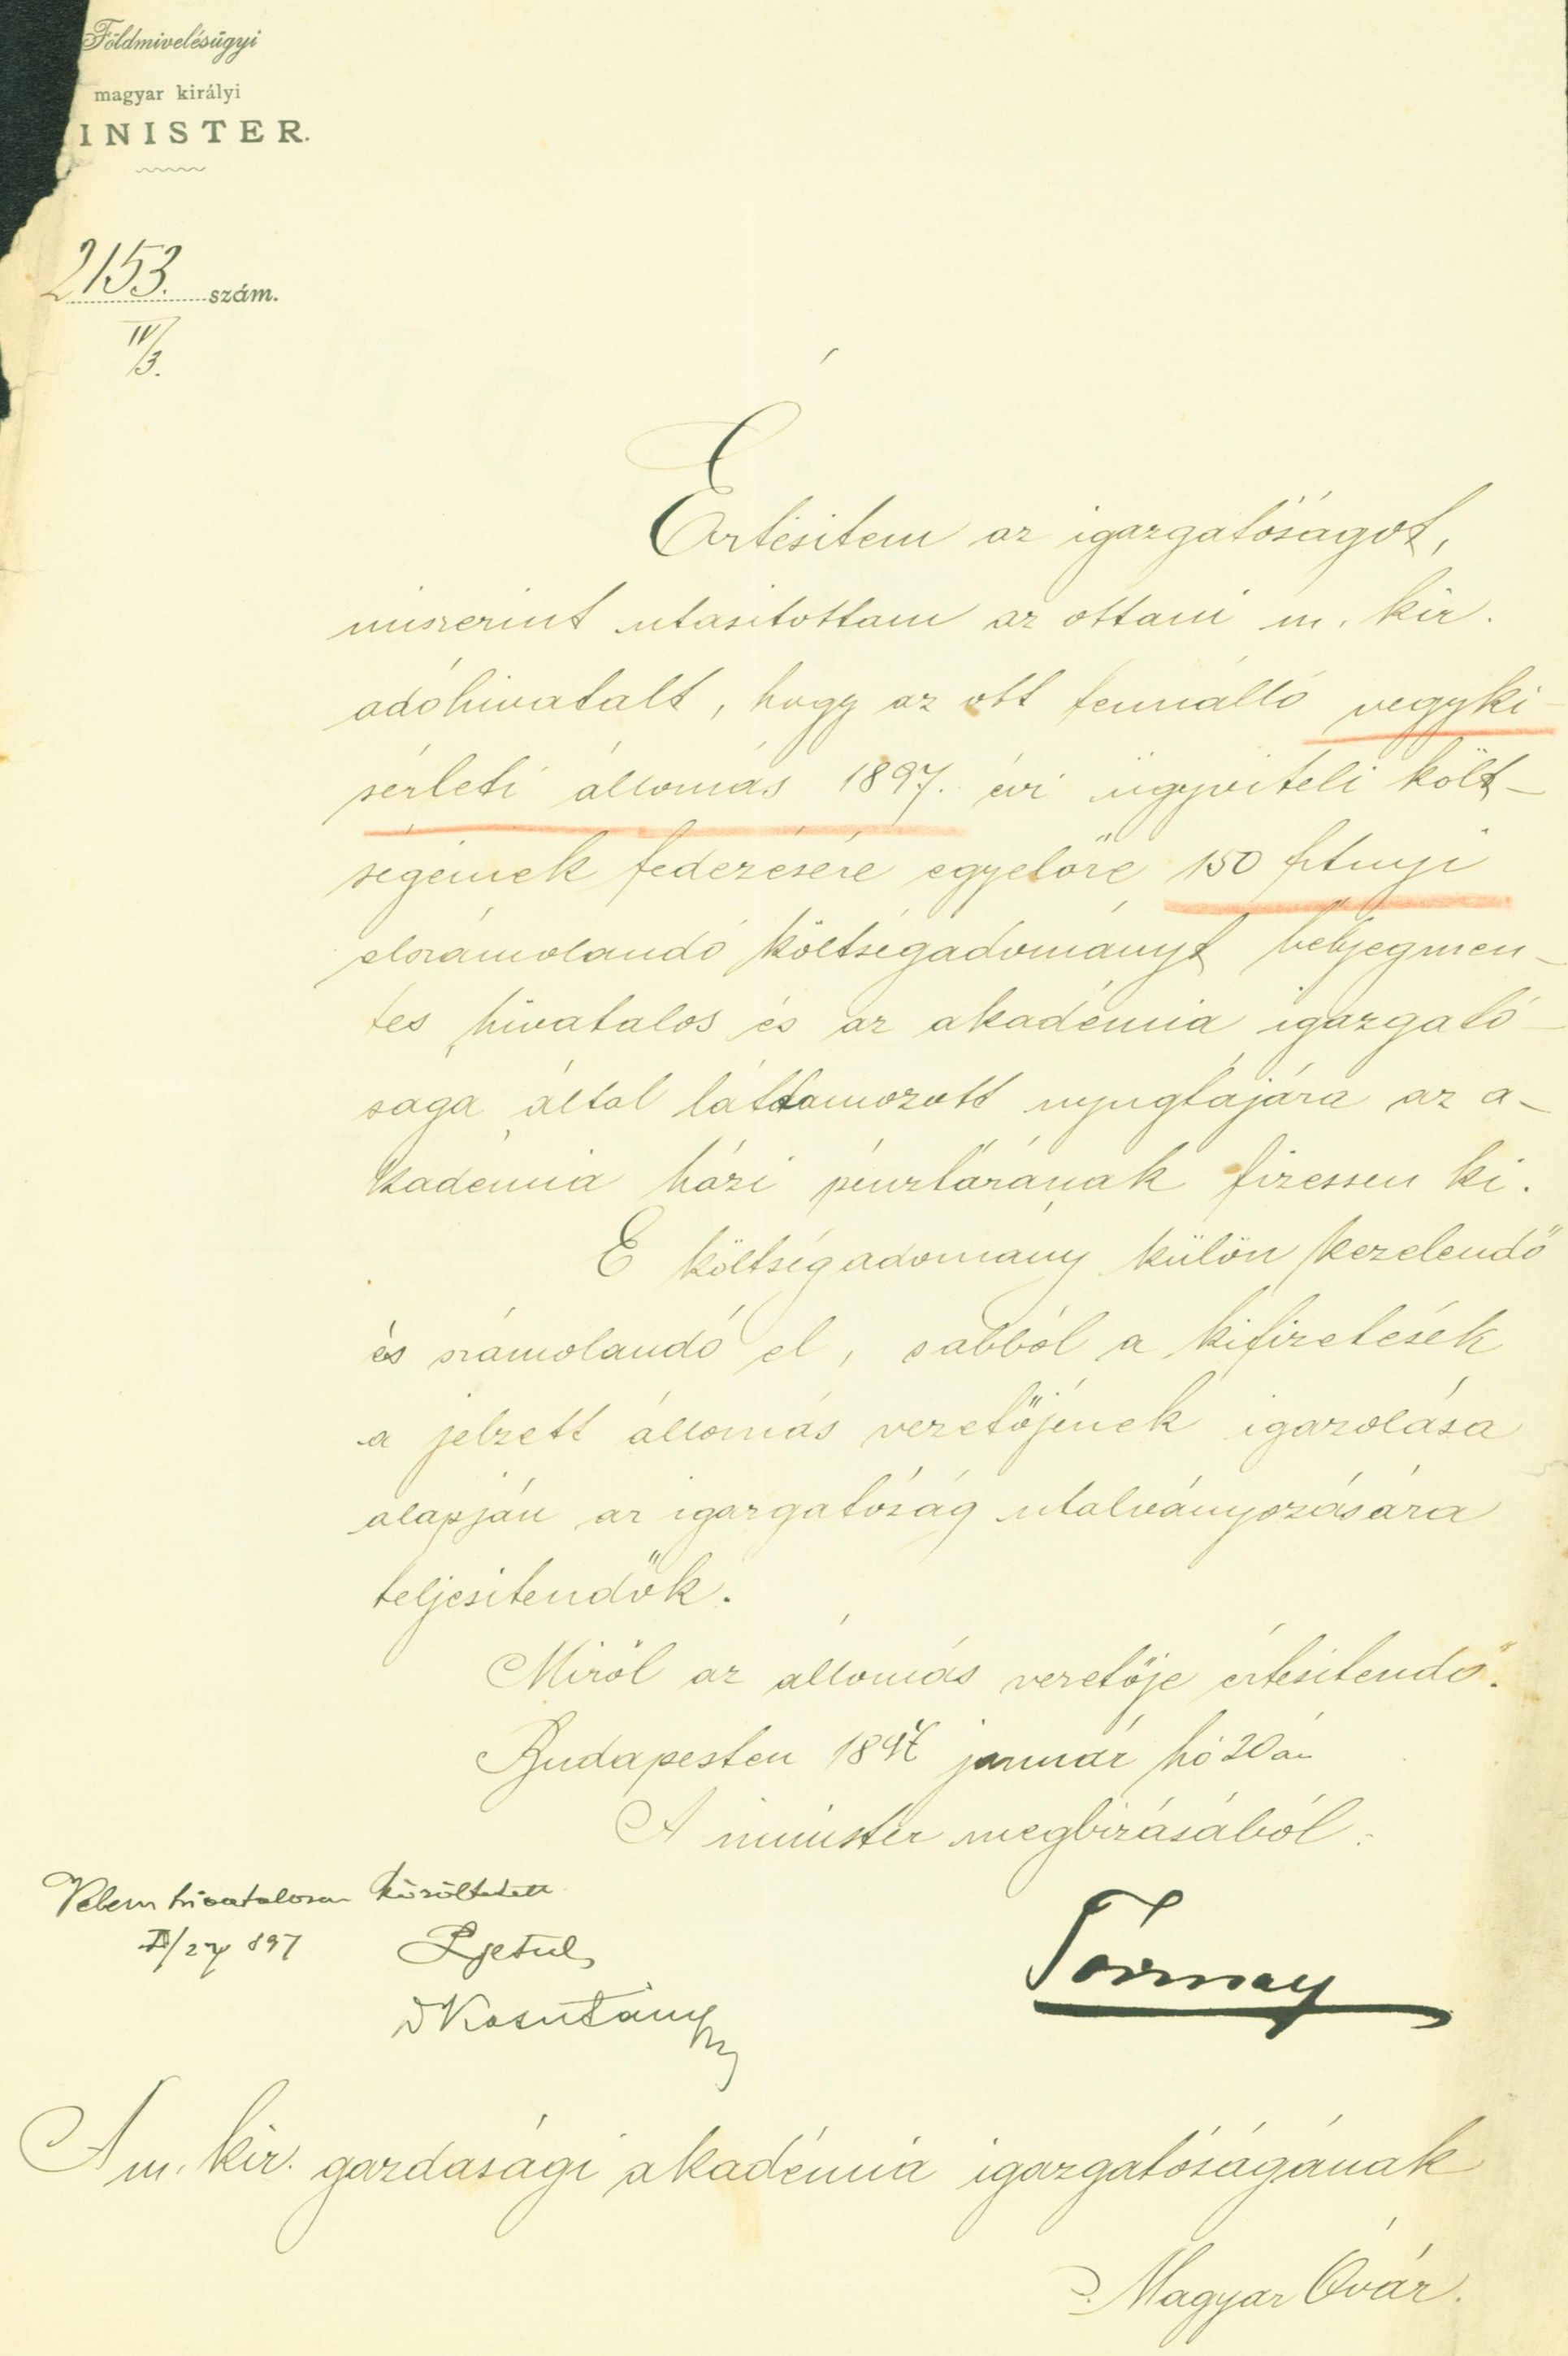 Földmivelésügyi
magyar királyi
INISTER.
2153. szám.
IV/3.
Értesitem az igazgatóságot,
miszerint utasitottam az ottani m. kir.
adóhivatalt, hogy az ott fennálló vegyki-
sérleti állomás 1897. évi ügyviteli költ-
ségeinek fedezésére egyelőre 150 frtnyi
elszámolandó költségadományt bélyegmen-
tes hivatalos és az akadémia igazgató-
sága által láttamozott nyugtájára az a-
kadémia házi pénztárának fizessen ki.
E költségadomány külön kezelendő
és számolandó el, s abból a kifizetések
a jelzett állomás vezetőjének igazolása
alapján az igazgatóság utalványozására
teljesitendők.
Miről az állomás vezetője értesitendő.
Budapesten 1897 január hó 20án
A minister megbizásából:
Velem hivatalosan közöltetett
I/27 897
Dr Kosutány
Tormay
A m. kir. gazdasági akadémia igazgatóságának
Magyar Óvár.